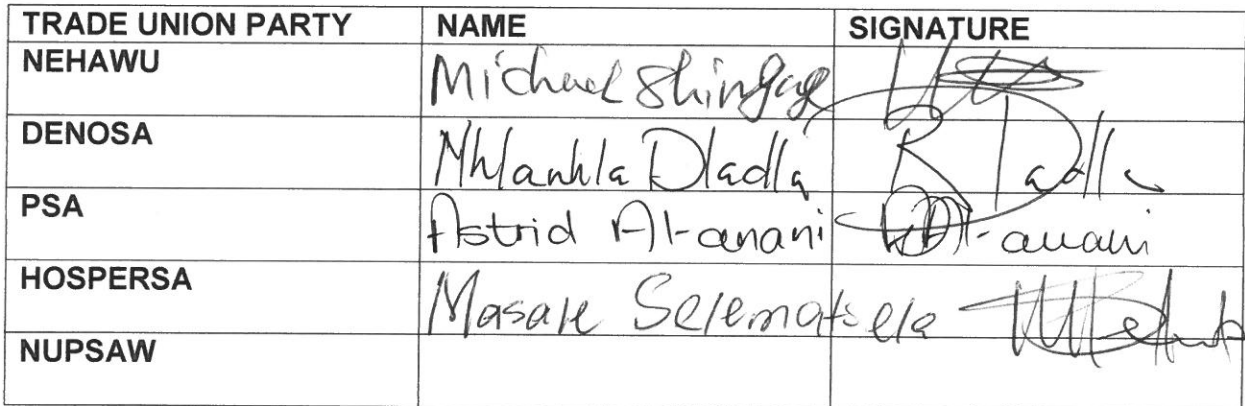 TRADE UNION PARTY NAME SIGNATURE
NEHAWU Michael Shingange
DENOSA Nhlanhla Dladla Dladla
PSA Astrid Al-anani Al-anani
HOSPERSA Masale Selematsela
NUPSAW